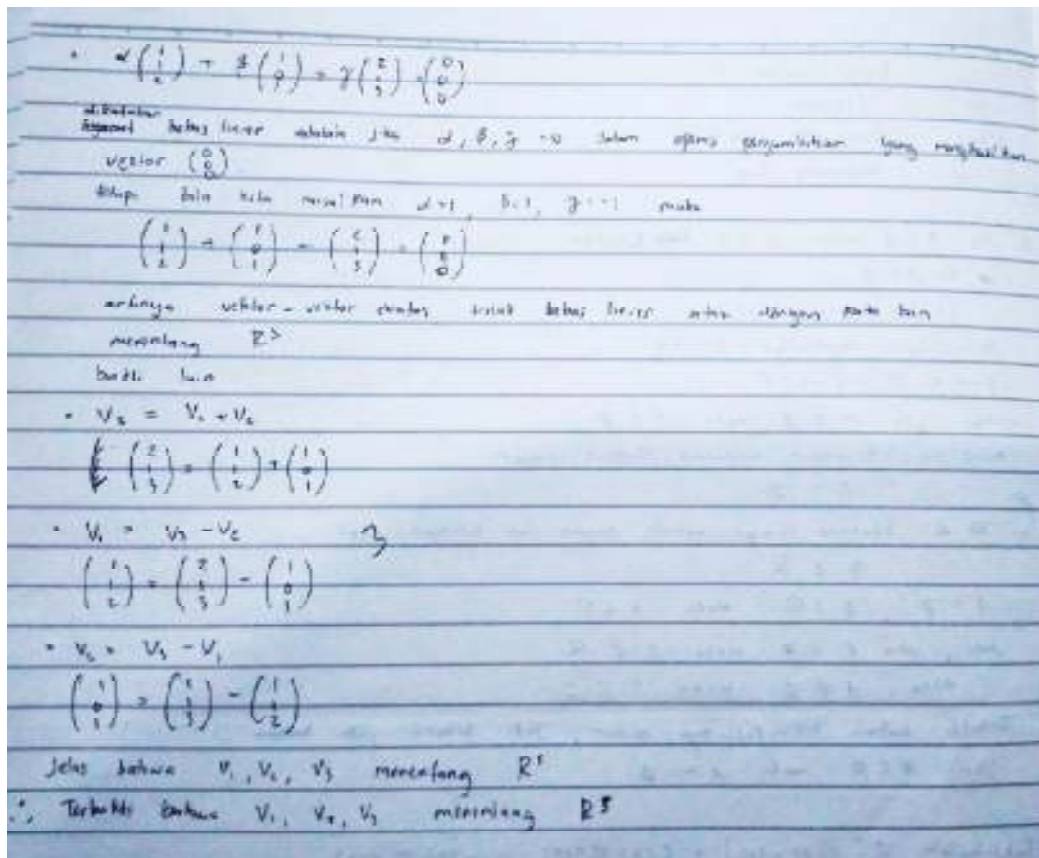 • α (1 1 2) + β (1 0 1) + γ (2 1 3) = (0 0 0)
dikatakan bebas linier adalah jika α, β, γ = 0 dalam operasi penjumlahan yang menghasilkan
vektor (0 0 0)
tetapi bila kita misalkan α = 1, β = 1, γ = -1 maka
(1 1 2) + (1 0 1) - (2 1 3) = (0 0 0)
artinya vektor - vektor diatas tidak bebas linier atau dengan kata lain
merentang R³
bukti lain
• V₃ = V₁ + V₂
(2 1 3) = (1 1 2) + (1 0 1)
• V₁ = V₃ - V₂
(1 1 2) = (2 1 3) - (1 0 1)
• V₂ = V₃ - V₁
(1 0 1) = (2 1 3) - (1 1 2)
Jelas bahwa V₁, V₂, V₃ merentang R³
∴ Terbukti bahwa V₁, V₂, V₃ merentang R³